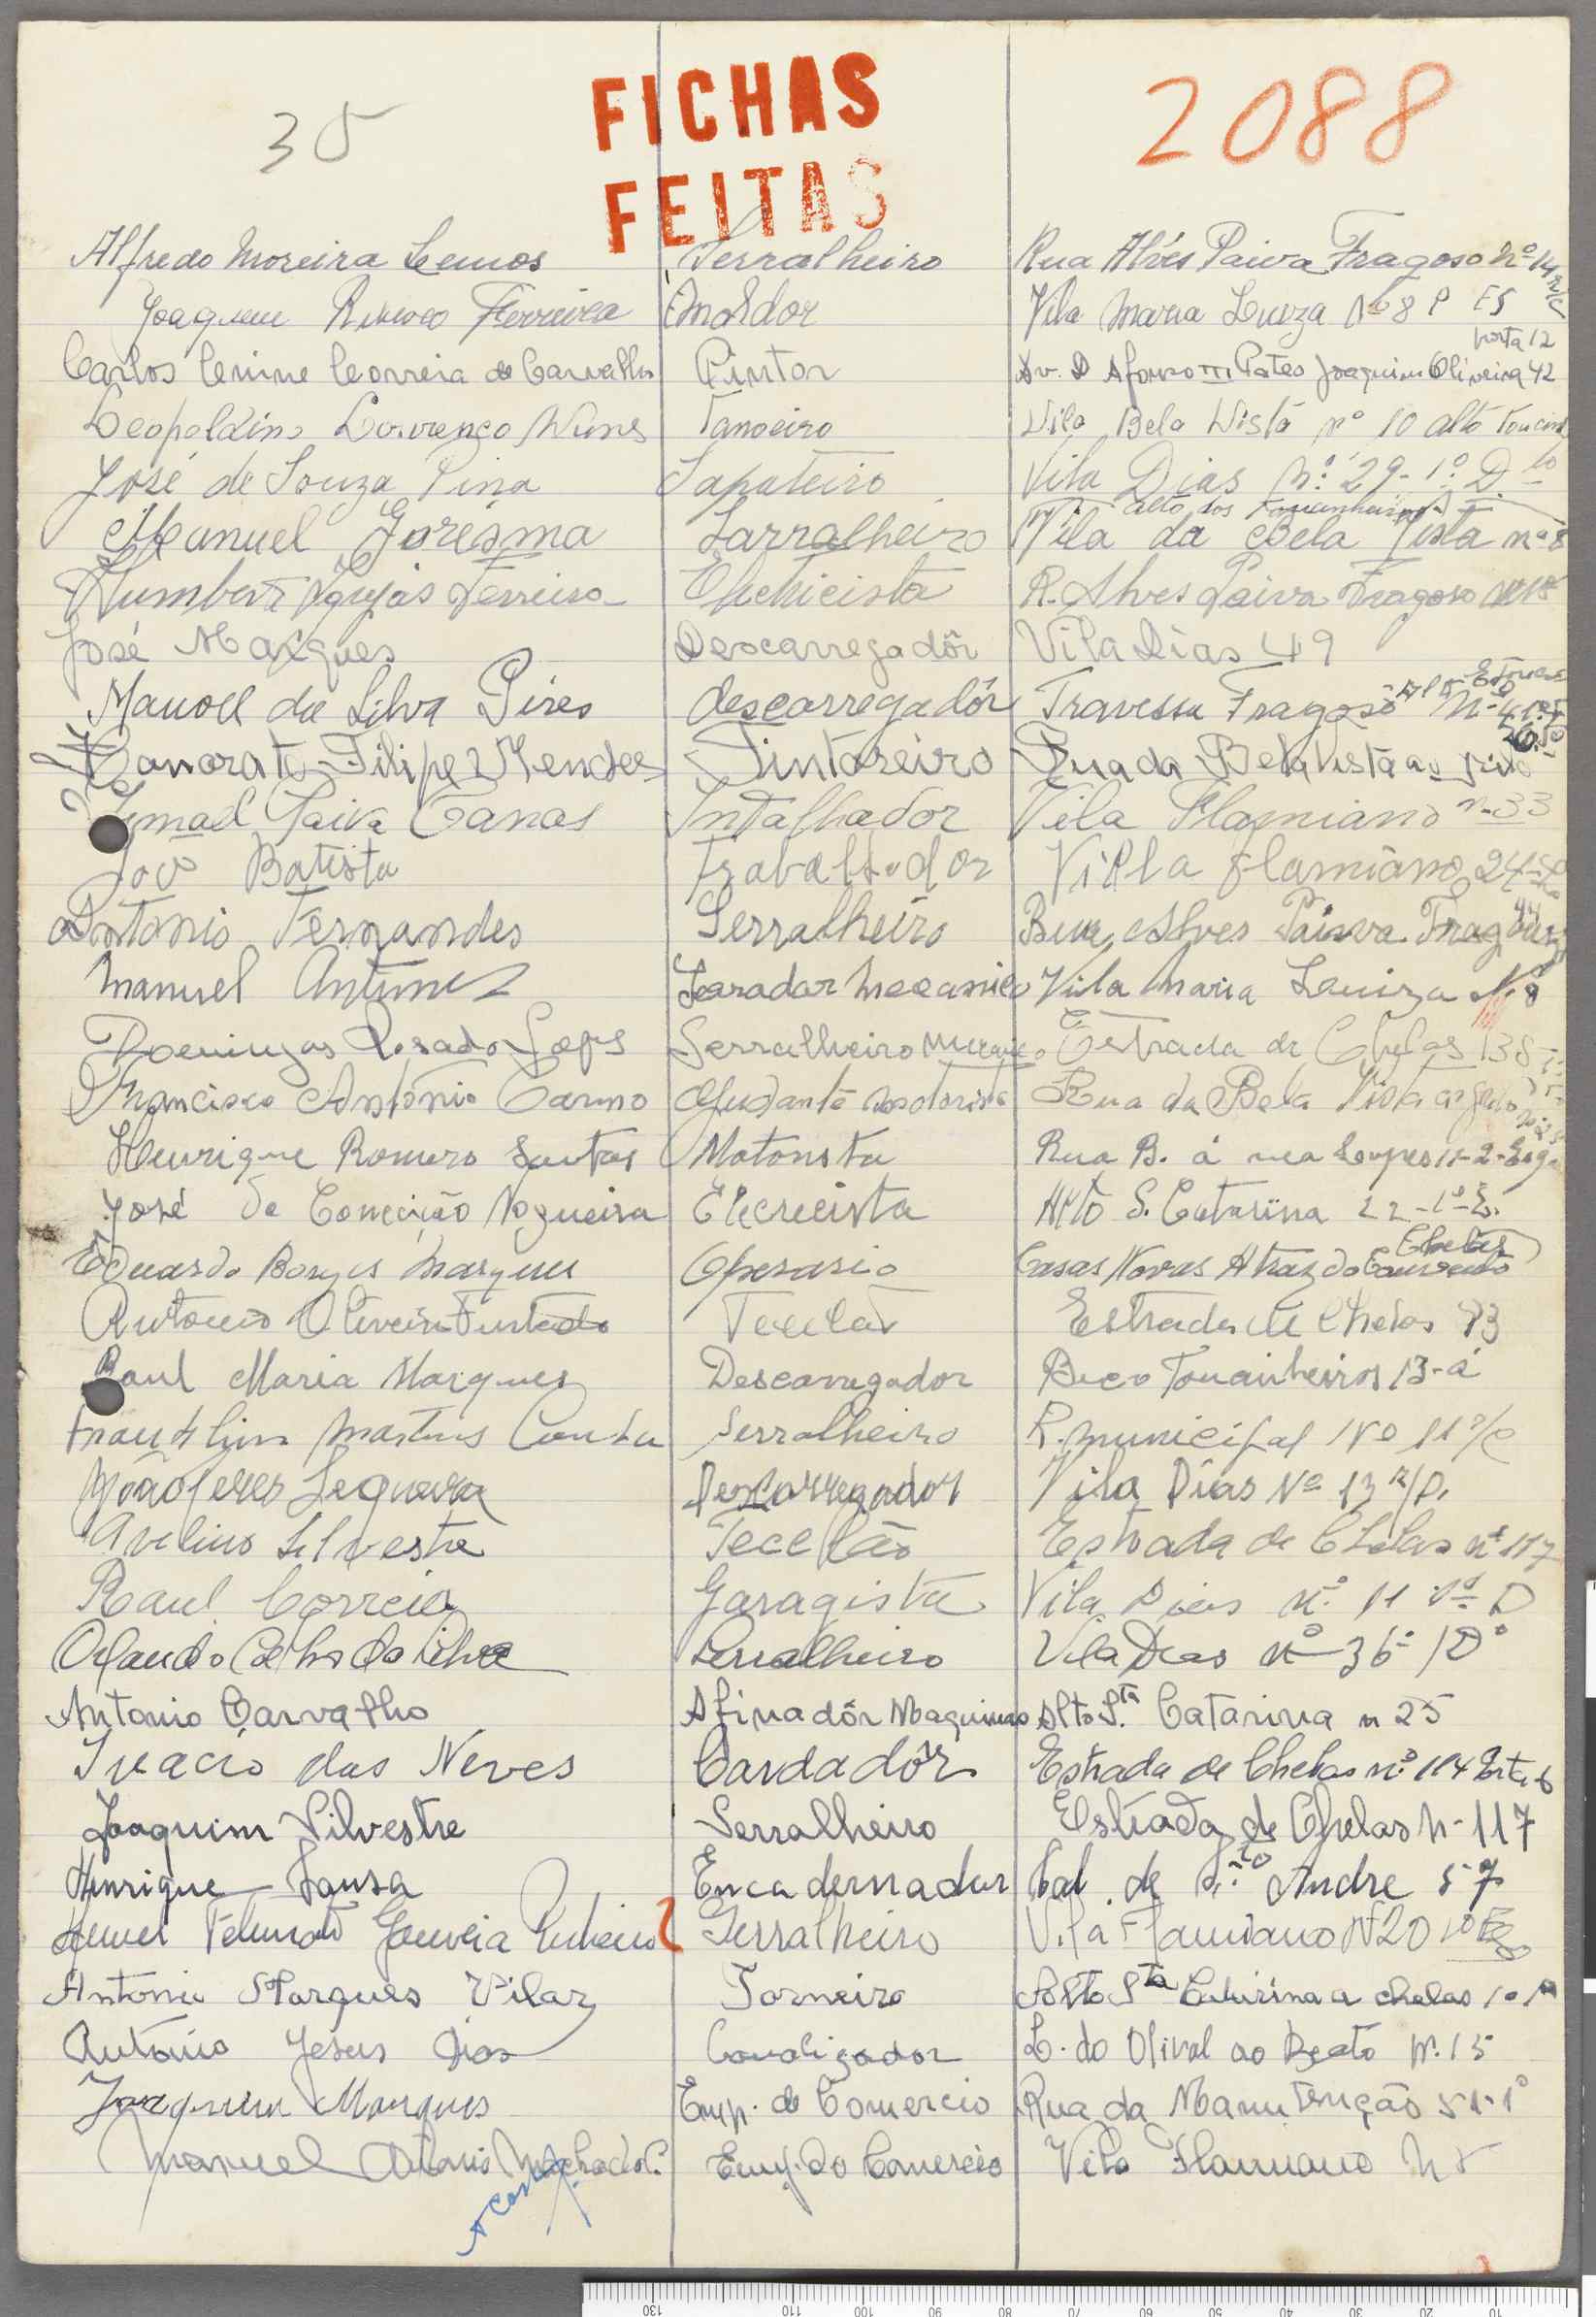 35
FICHAS
FEITAS
2088
Alfredo Moreira Lemos Serralheiro Rua Alvés Paiva Fragoso Nº 14 R/C
Joaquim Ferreira Vila Maria Luiza Nº 8 P E5
porta 12
Carlos Lenine Correia de Carvalho Pintor Av. D Afonso III Pateo Joaquim Oliveira 42
Leopoldino Lourenço Nunes Tanoeiro Vila Bela Vista nº 10 alto
José de Souza Pina Sapateiro Vila Dias Nº 29-1º Dto
alto dos
Manuel Gorésma Sarralheiro Vila da Bela Vista nº 8
Ferreira Electricista R. Alves Paiva Fragoso
José Marques Descarregadôr Vila Dias 49
Manoel da Silva Pires descarregadôr Travessa Fragoso
Filipe Mendes Tintoreiro Rua da Bela Vista
Paiva Canas Intalhador Vila Flamiano n-33
Batista Trabalhador Villa Flamiano
Antonio Fernandes Serralheiro Alves Paiva
Manuel Antunes mecanico Vila Maria Luiza Nº 8
Domingos Rosado Lopes Serralheiro mecanico Estrada de Chelas 138
Francisco António Carmo Ajudante motorista Rua da Bela Vista
Henrique Romero Santos Motorista Rua B. á rua
José da Conceição Nogueira Elecrecista Alto S. Catarina 22-1º-E.
Chelas
Eduardo Borges Marques Operario Casas Novas Atraz do Convento
Antonio Oliveira Furtado Tecelão Estrada de Chelas 93
Raul Maria Marques Descarregador Beco Toucinheiros 13-á
Franklim Martins Serralheiro R. Municipal Nº 11 r/c
João Sequeira Descarregador Vila Dias Nº 13 R/D.
Avelino Silvestre Tecelão Estrada de Chelas nº 117
Raul Correia Garagista Vila Dias Nº 11 1º D
Orlando Coelho da Silva Serralheiro Vila Dias nº 36
Antonio Carvalho Afinadôr Maquinas Alto S.ta Catarina n 25
Inacio das Neves Cardadôr Estrada de Chelas nº 114
Joaquim Silvestre Serralheiro Estrada de Chelas N- 117
Henrique Sousa Encadernador Cal. de S.to Andre 57
Gouveia Serralheiro Vila Flamiano Nº 20 1º
Antonio Marques Vilar Torneiro Alto Sta Catarina a chelas
António Jesus Dias Canalizador L. do Olival ao Beato Nº. 15
Joaquim Marques Emp. do Comercio Rua da Manutenção 51-1º
Manuel Antonio Machado Emp. do Comercio Vila Flamiano